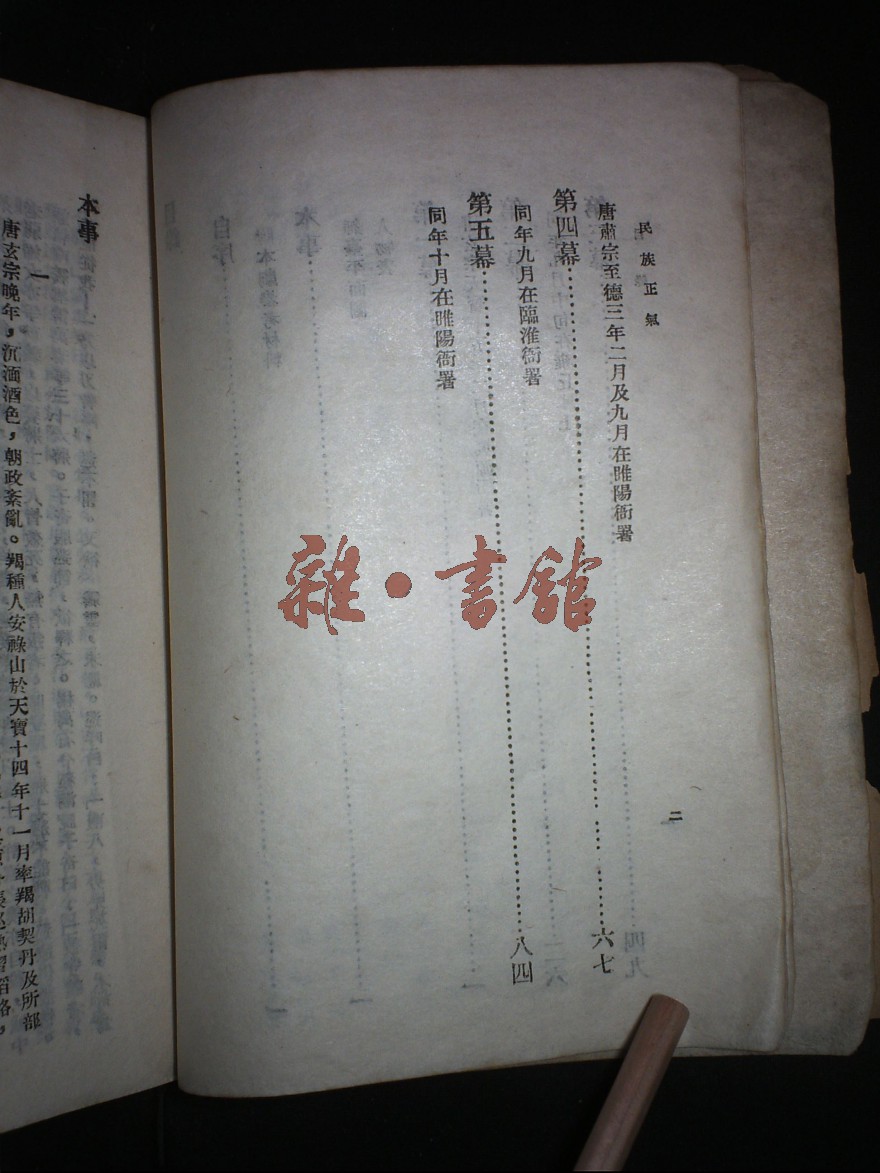 民族正氣
唐肅宗至德三年二月及九月在睢陽衙署
第四幕……六七
同年九月在臨淮衙署
第五幕……八四
同年十月在睢陽衙署
二
雜·書館
本事
一
唐玄宗晚年，沉湎酒色，朝政紊亂。羯種人安祿山於天寶十四年十一月率羯胡契丹及所部